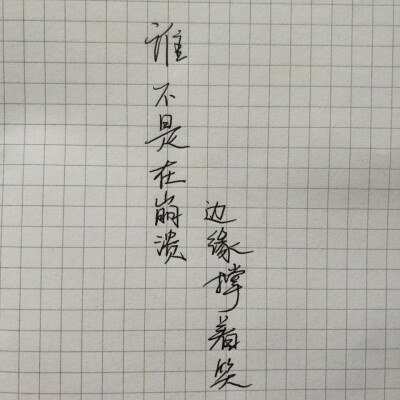 谁不是在崩溃
边缘撑着笑